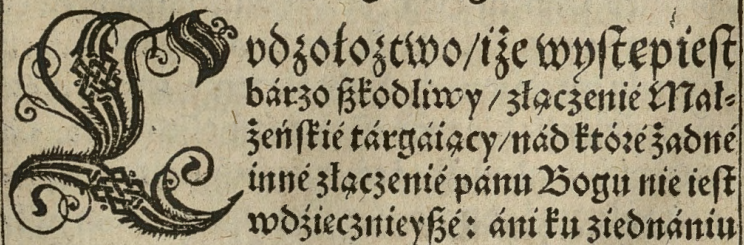 Cvdzołoztwo/iże występ iest
bárzo ßkodliwy/złączenié Mał⸗
żeńskié tárgáiący/nád któré żadné
inné złączenié pánu Bogu nie iest
wdzięcznieyßé: áni ku ziednániu